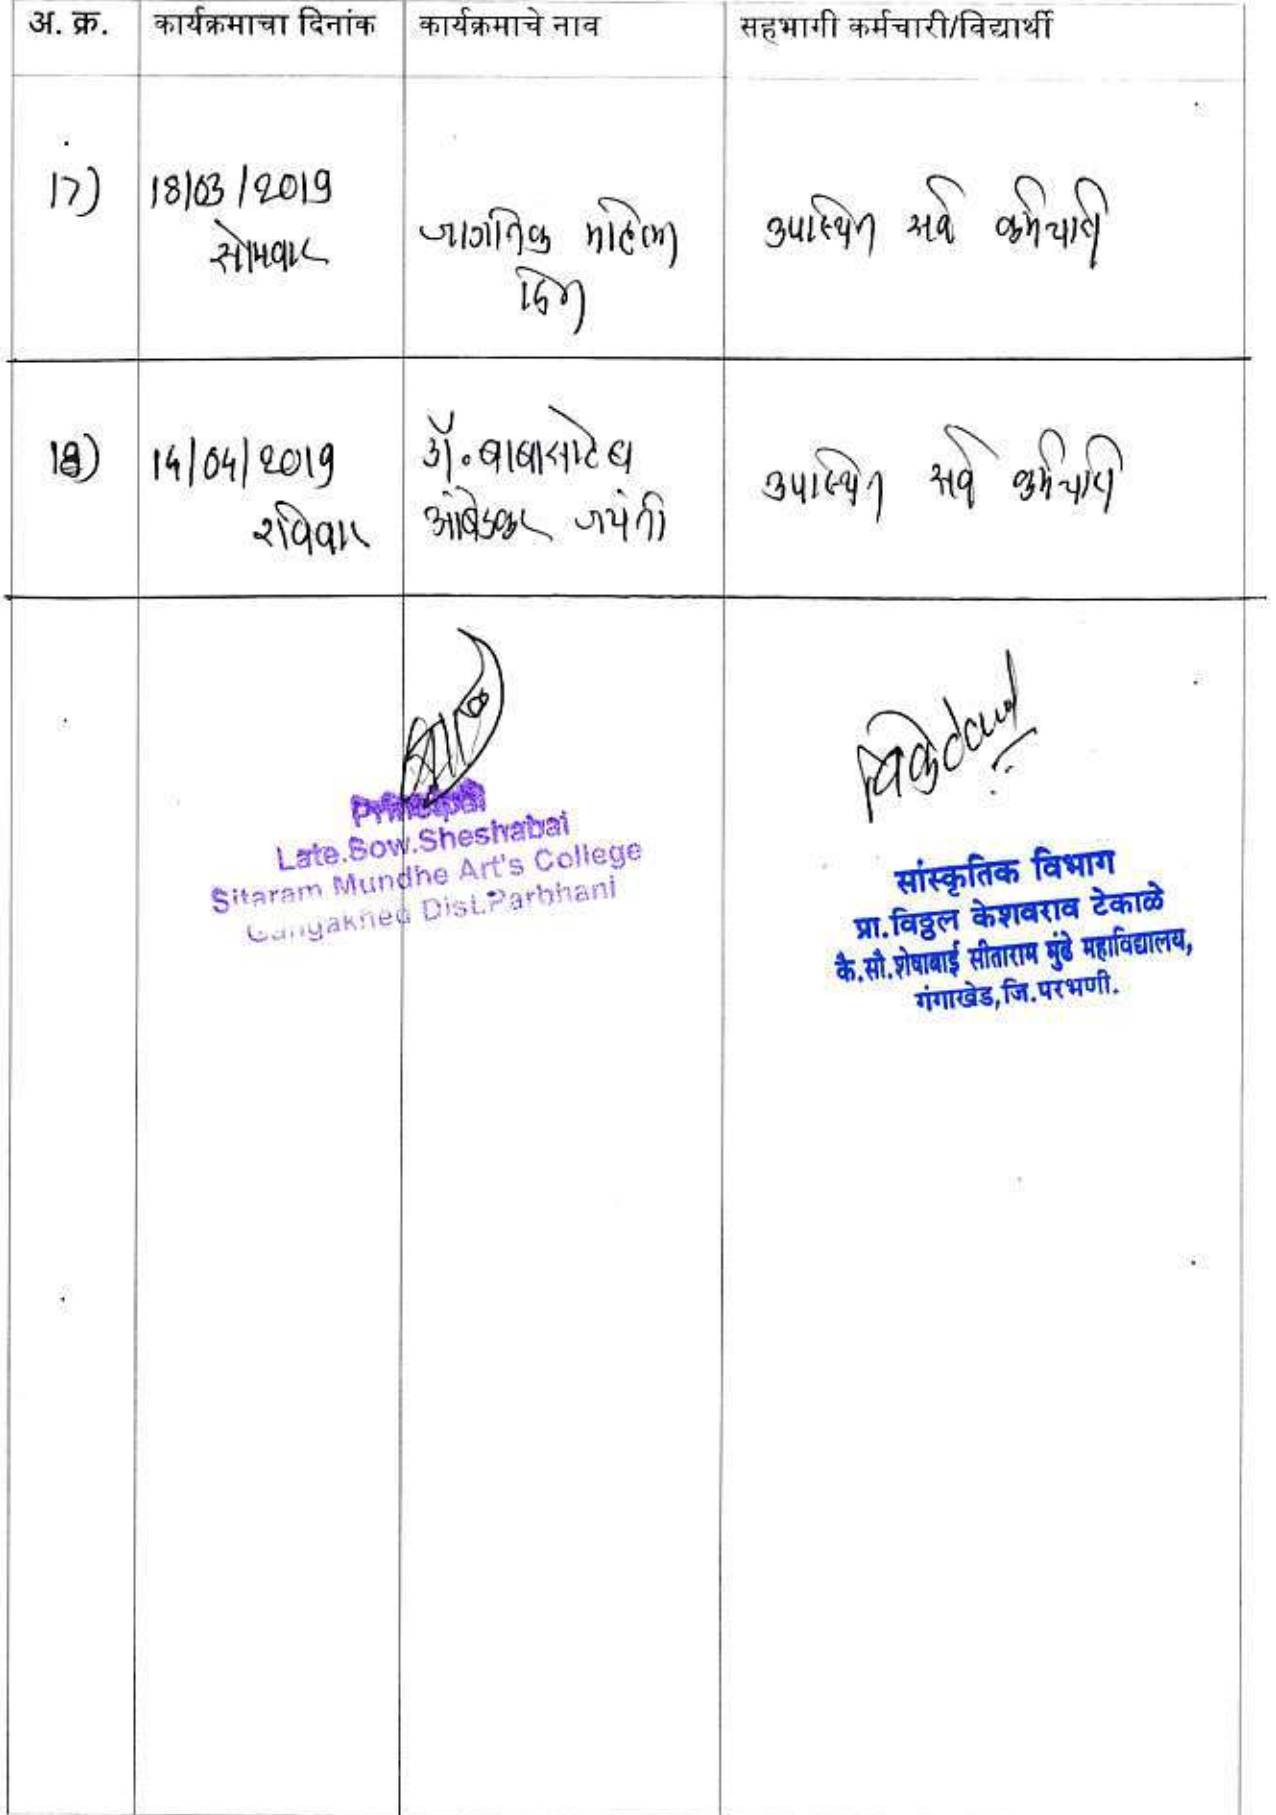 अ. क्र. कार्यक्रमाचा दिनांक कार्यक्रमाचे नाव सहभागी कर्मचारी/विद्यार्थी
17) 18/03/2019 जागतिक महिला उपस्थित सर्व कर्मचारी
सोमवार दिन
18) 14/04/2019 डॉ. बाबासाहेब उपस्थित सर्व कर्मचारी
रविवार आंबेडकर जयंती
Principal
Late.Sow.Sheshabai
Sitaram Mundhe Art's College
Gangakhed Dist.Parbhani
सांस्कृतिक विभाग
प्रा.विठ्ठल केशवराव टेकाळे
कै.सौ.शेषाबाई सीताराम मुंढे महाविद्यालय,
गंगाखेड,जि.परभणी.